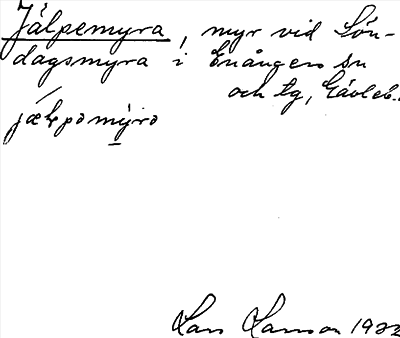 Jälpemyra, myr vid Sön-
dagsmyra i Enångers sn
och tg, Gävleb.
jælpomýro
Lars Larsson 1932